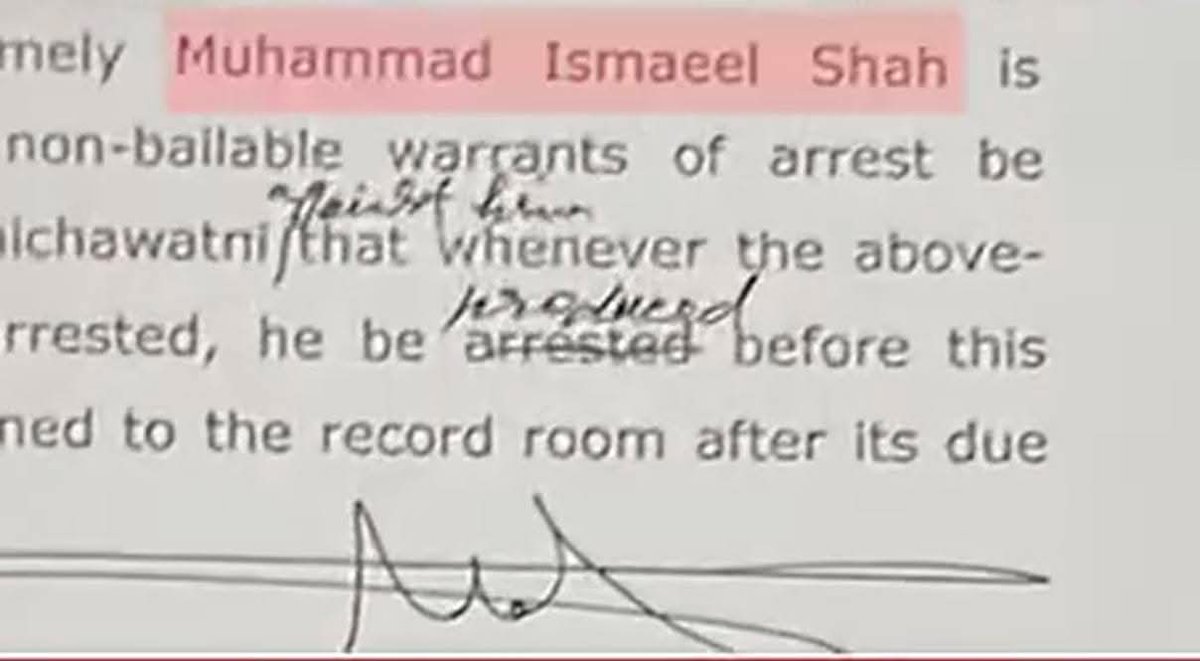 mely Muhammad Ismaeel Shah is
non-bailable warrants of arrest be
against him
ichawatni that whenever the above-
produced
rrested, he be arrested before this
ned to the record room after its due